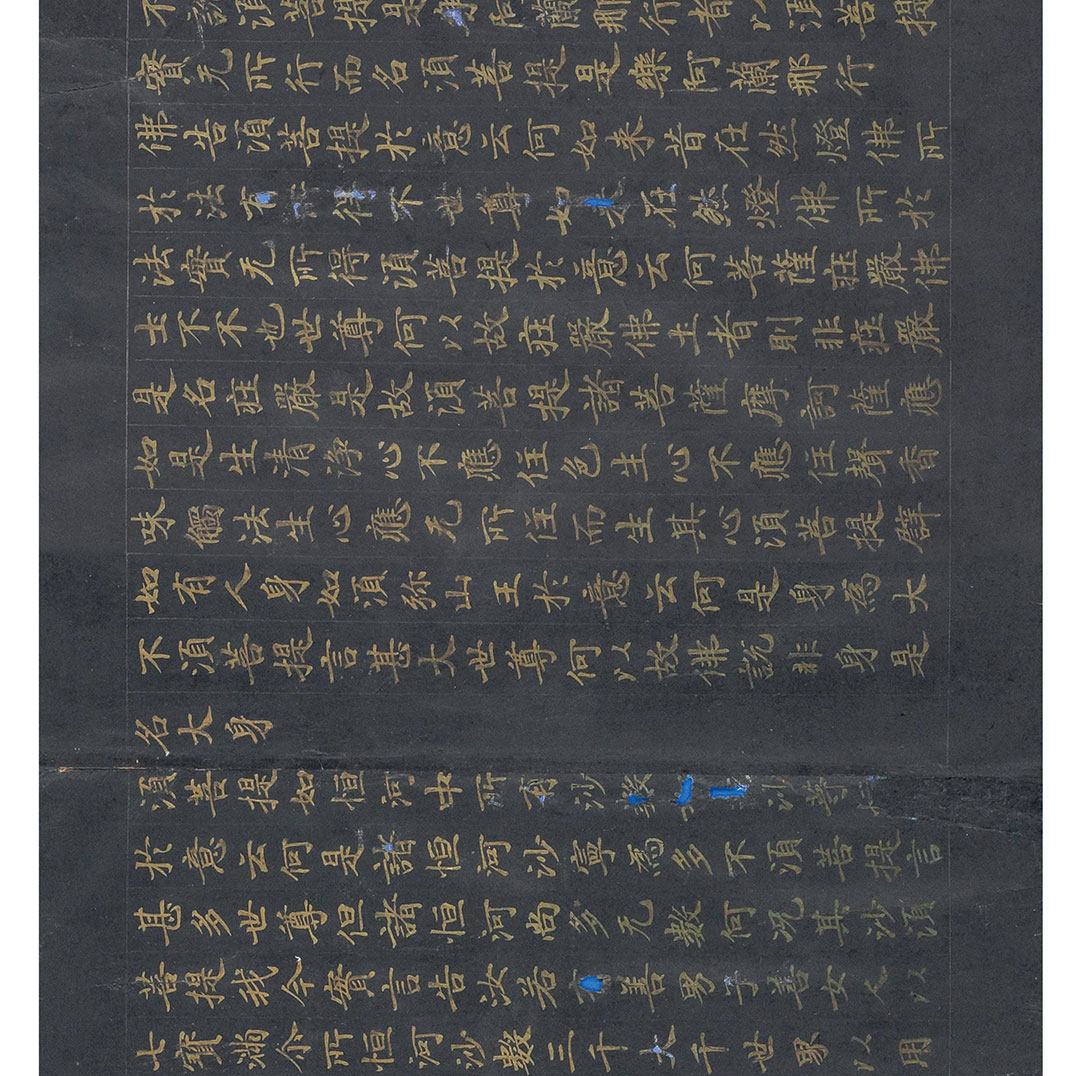 不說須菩提是樂阿蘭那行者以須菩提
實无所行而名須菩提是樂阿蘭那行
佛告須菩提於意云何如來昔在然燈佛所
於法有所得不世尊如來在然燈佛所於
法實无所得須菩提於意云何菩薩莊嚴佛
土不不也世尊何以故莊嚴佛土者則非莊嚴
是名莊嚴是故須菩提諸菩薩摩訶薩應
如是生清淨心不應住色生心不應住聲香
味觸法生心應无所住而生其心須菩提譬
如有人身如須弥山王於意云何是身為大
不須菩提言甚大世尊何以故佛說非身是
名大身
須菩提如恒河中所有沙數沙等
於意云何是諸恒河沙寧為多不須菩提言
甚多世尊但諸恒河尚多无數何况其沙須
菩提我今實言告汝若有善男子善女人以
七寶滿尒所恒河沙數三千大千世界以用